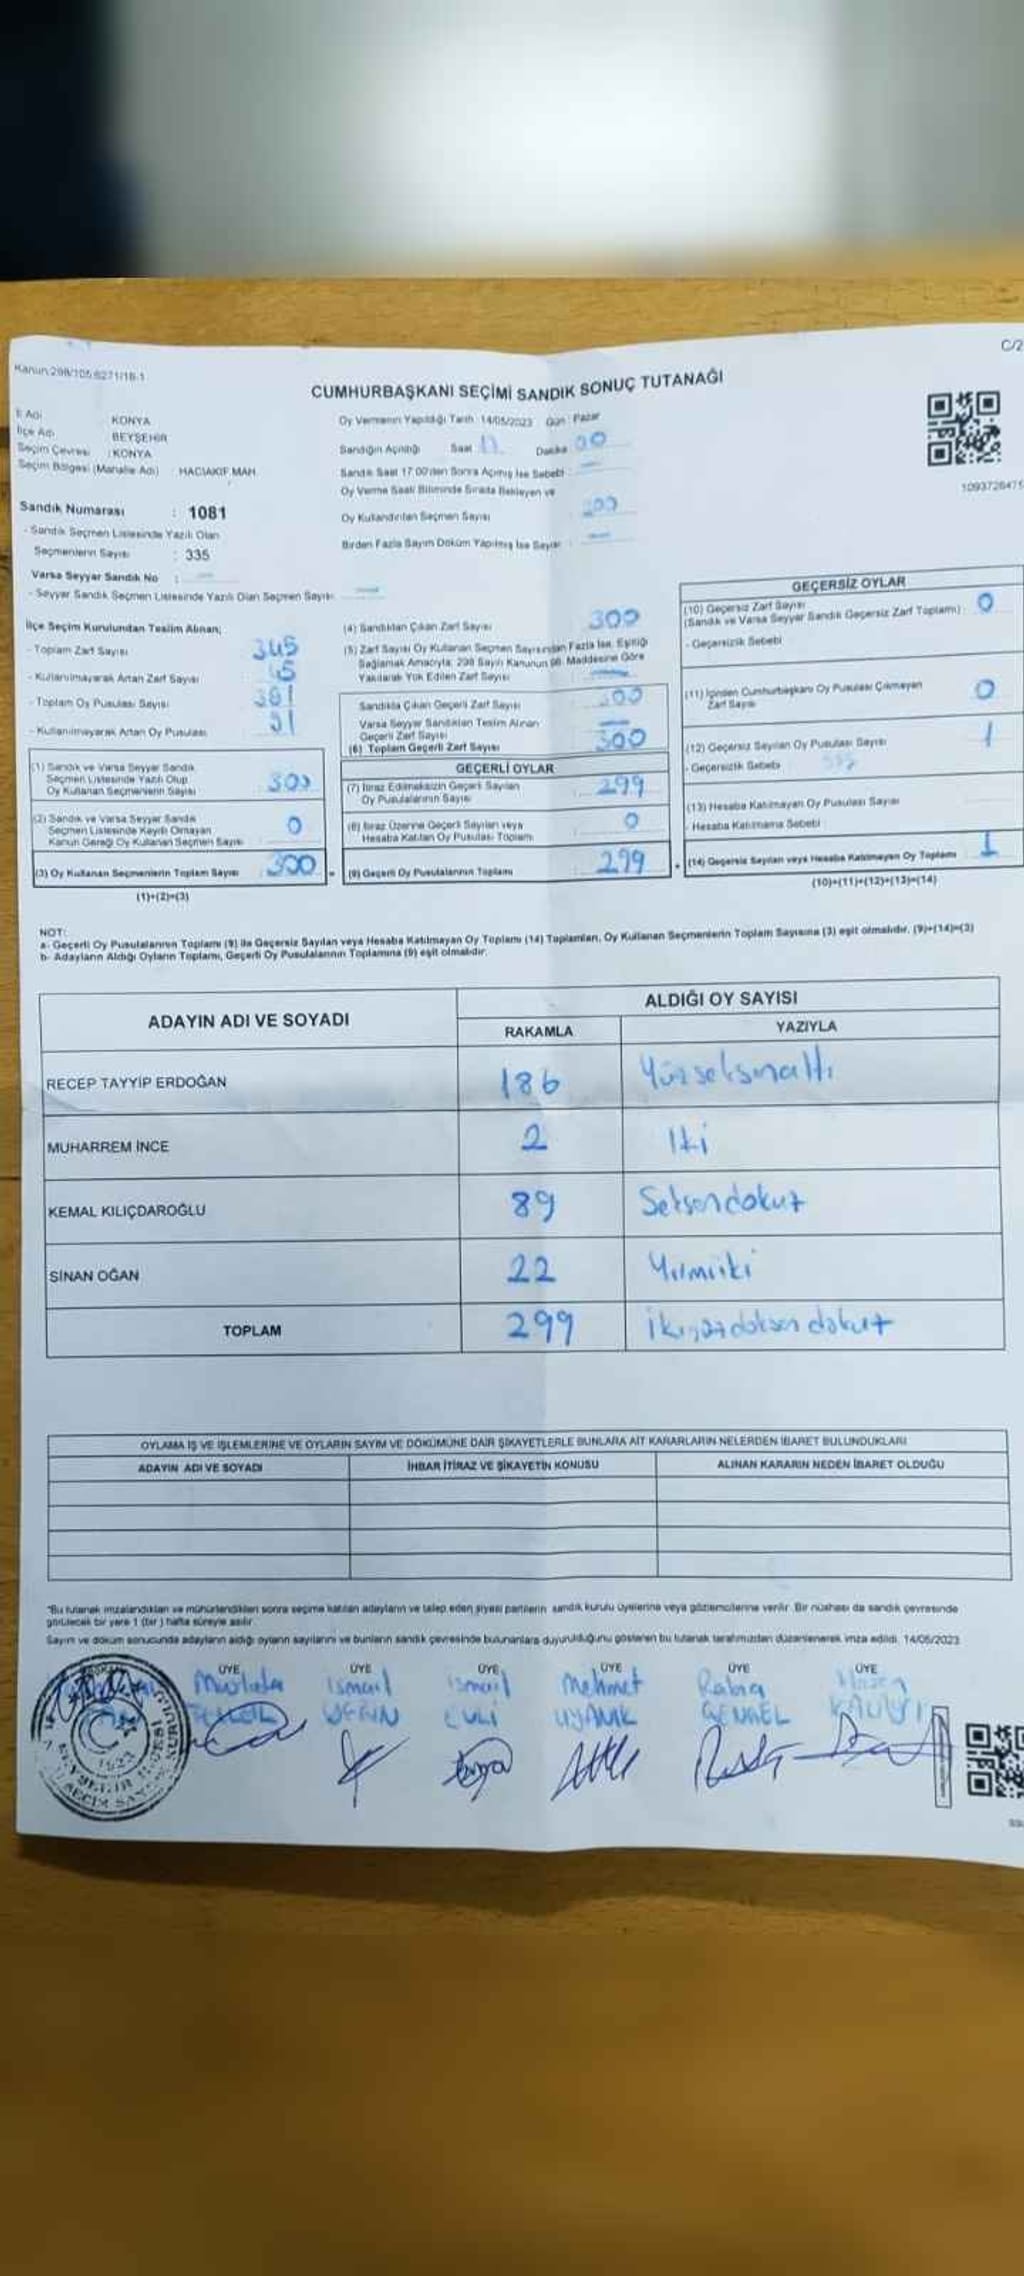 Kanun:298/105,6271/18-1
C/2
CUMHURBAŞKANI SEÇİMİ SANDIK SONUÇ TUTANAĞI
İl Adı KONYA
İlçe Adı BEYŞEHİR
Seçim Çevresi : KONYA
Seçim Bölgesi (Mahalle Adı) : HACIAKİF MAH.
Sandık Numarası : 1081
- Sandık Seçmen Listesinde Yazılı Olan
Seçmenlerin Sayısı : 335
Varsa Seyyar Sandık No :
- Seyyar Sandık Seçmen Listesinde Yazılı Olan Seçmen Sayısı
Oy Vermenin Yapıldığı Tarih : 14/05/2023 Gün : Pazar
Sandığın Açıldığı Saat 17 Dakika 00
Sandık Saat 17:00'den Sonra Açılmış İse Sebebi :
Oy Verme Saati Bitiminde Sırada Bekleyen ve
Oy Kullandırılan Seçmen Sayısı
Birden Fazla Sayım Döküm Yapılmış İse Sayısı :
İlçe Seçim Kurulundan Teslim Alınan;
- Toplam Zarf Sayısı 345
- Kullanılmayarak Artan Zarf Sayısı 45
- Toplam Oy Pusulası Sayısı
- Kullanılmayarak Artan Oy Pusulası
(1) Sandık ve Varsa Seyyar Sandık
Seçmen Listesinde Yazılı Olup
Oy Kullanan Seçmenlerin Sayısı 300
(2) Sandık ve Varsa Seyyar Sandık
Seçmen Listesinde Kaydı Olmayan
Kanun Gereği Oy Kullanan Seçmen Sayısı 0
(3) Oy Kullanan Seçmenlerin Toplam Sayısı 300
(1)+(2)=(3)
(4) Sandıktan Çıkan Zarf Sayısı 300
(5) Zarf Sayısı Oy Kullanan Seçmen Sayısından Fazla İse, Eşitliği
Sağlamak Amacıyla, 298 Sayılı Kanunun 98. Maddesine Göre
Yakılarak Yok Edilen Zarf Sayısı
Sandıkta Çıkan Geçerli Zarf Sayısı 300
Varsa Seyyar Sandıktan Teslim Alınan
Geçerli Zarf Sayısı
(6) Toplam Geçerli Zarf Sayısı 300
GEÇERLİ OYLAR
(7) İtiraz Edilmeksizin Geçerli Sayılan
Oy Pusulalarının Sayısı 299
(8) İtiraz Üzerine Geçerli Sayılan veya
Hesaba Katılan Oy Pusulası Toplamı 0
(9) Geçerli Oy Pusulalarının Toplamı 299
GEÇERSİZ OYLAR
(10) Geçersiz Zarf Sayısı
(Sandık ve Varsa Seyyar Sandık Geçersiz Zarf Toplamı) : 0
- Geçersizlik Sebebi
(11) İçinden Cumhurbaşkanı Oy Pusulası Çıkmayan
Zarf Sayısı 0
(12) Geçersiz Sayılan Oy Pusulası Sayısı 1
- Geçersizlik Sebebi
(13) Hesaba Katılmayan Oy Pusulası Sayısı
- Hesaba Katılmama Sebebi
(14) Geçersiz Sayılan veya Hesaba Katılmayan Oy Toplamı 1
(10)+(11)+(12)+(13)=(14)
NOT:
a- Geçerli Oy Pusulalarının Toplamı (9) ile Geçersiz Sayılan veya Hesaba Katılmayan Oy Toplamı (14) Toplamları, Oy Kullanan Seçmenlerin Toplam Sayısına (3) eşit olmalıdır. (9)+(14)=(3)
b- Adayların Aldığı Oyların Toplamı, Geçerli Oy Pusulalarının Toplamına (9) eşit olmalıdır.
ADAYIN ADI VE SOYADI
ALDIĞI OY SAYISI
RAKAMLA YAZIYLA
RECEP TAYYİP ERDOĞAN 186 Yüzseksenaltı
MUHARREM İNCE 2 İki
KEMAL KILIÇDAROĞLU 89 Seksendokuz
SİNAN OĞAN 22 Yirmiiki
TOPLAM 299 İkiyüzdoksendokuz
OYLAMA İŞ VE İŞLEMLERİNE VE OYLARIN SAYIM VE DÖKÜMÜNE DAİR ŞİKAYETLERLE BUNLARA AİT KARARLARIN NELERDEN İBARET BULUNDUKLARI
ADAYIN ADI VE SOYADI İHBAR İTİRAZ VE ŞİKAYETİN KONUSU ALINAN KARARIN NEDEN İBARET OLDUĞU
*Bu tutanak imzalandıktan ve mühürlendikten sonra seçime katılan adayların ve talep eden siyasi partilerin sandık kurulu üyelerine veya gözlemcilerine verilir. Bir nüshası da sandık çevresinde
görülecek bir yere 1 (bir ) hafta süreyle asılır.
Sayım ve döküm sonucunda adayların aldığı oyların sayılarını ve bunların sandık çevresinde bulunanlara duyurulduğunu gösteren bu tutanak tarafımızdan düzenlenerek imza edildi. 14/05/2023
ÜYE ÜYE ÜYE ÜYE ÜYE ÜYE
Mustafa İsmail İsmail Mehmet Rabia
UYANIK